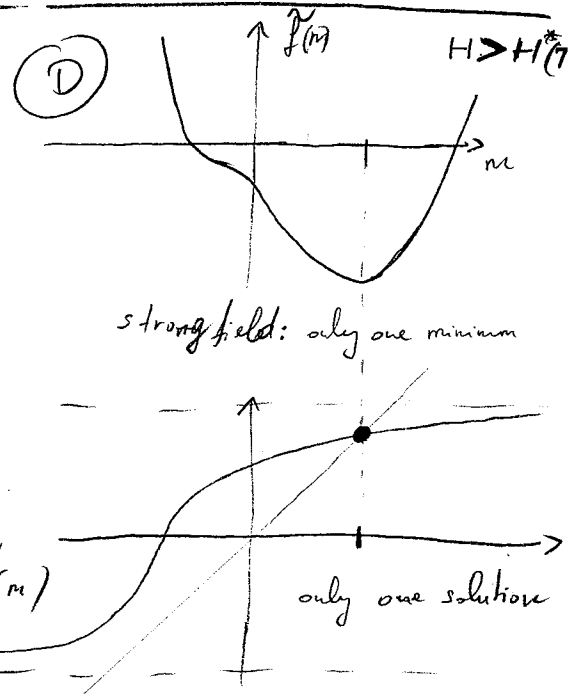 D
f̃(m)
H > H*(T
m
strong field: only one minimum
(m)
only one solution